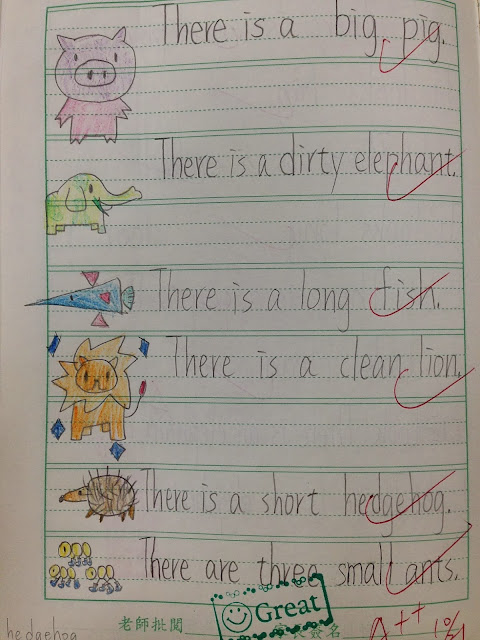 There is a big pig.
There is a dirty elephant.
There is a long fish.
There is a clean lion.
There is a short hedgehog.
There are three small ants.
Great
hedgehog 老師批閱 簽名 A++